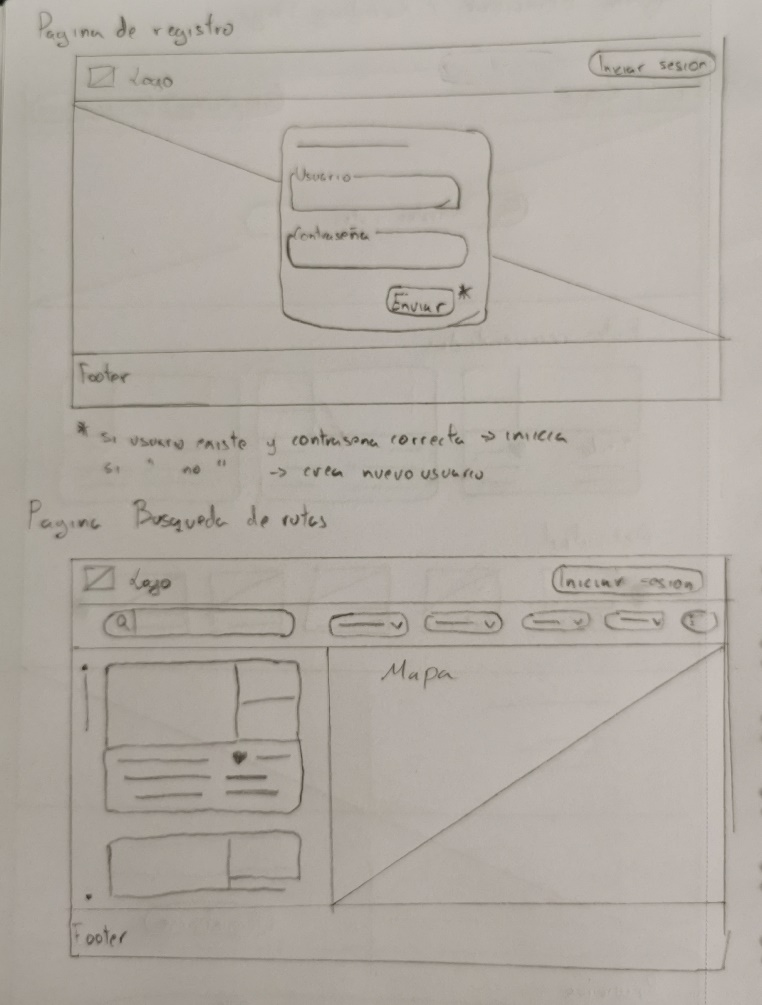 Pagina de registro
Logo
Iniciar sesion
Usuario
Contraseña
Enviar *
Footer
* si usuario existe y contrasena correcta → inicia
si " no " → crea nuevo usuario
Pagina Busqueda de rutas
Logo
Iniciar sesion
Mapa
Footer